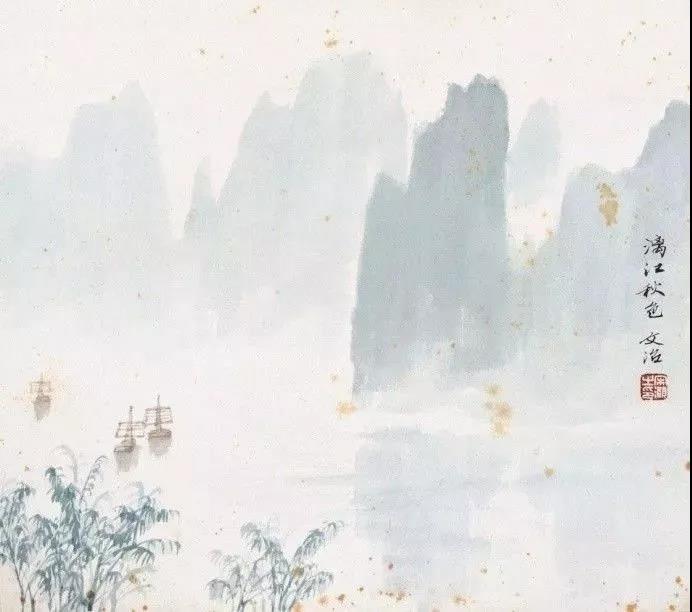 漓江秋色 文治